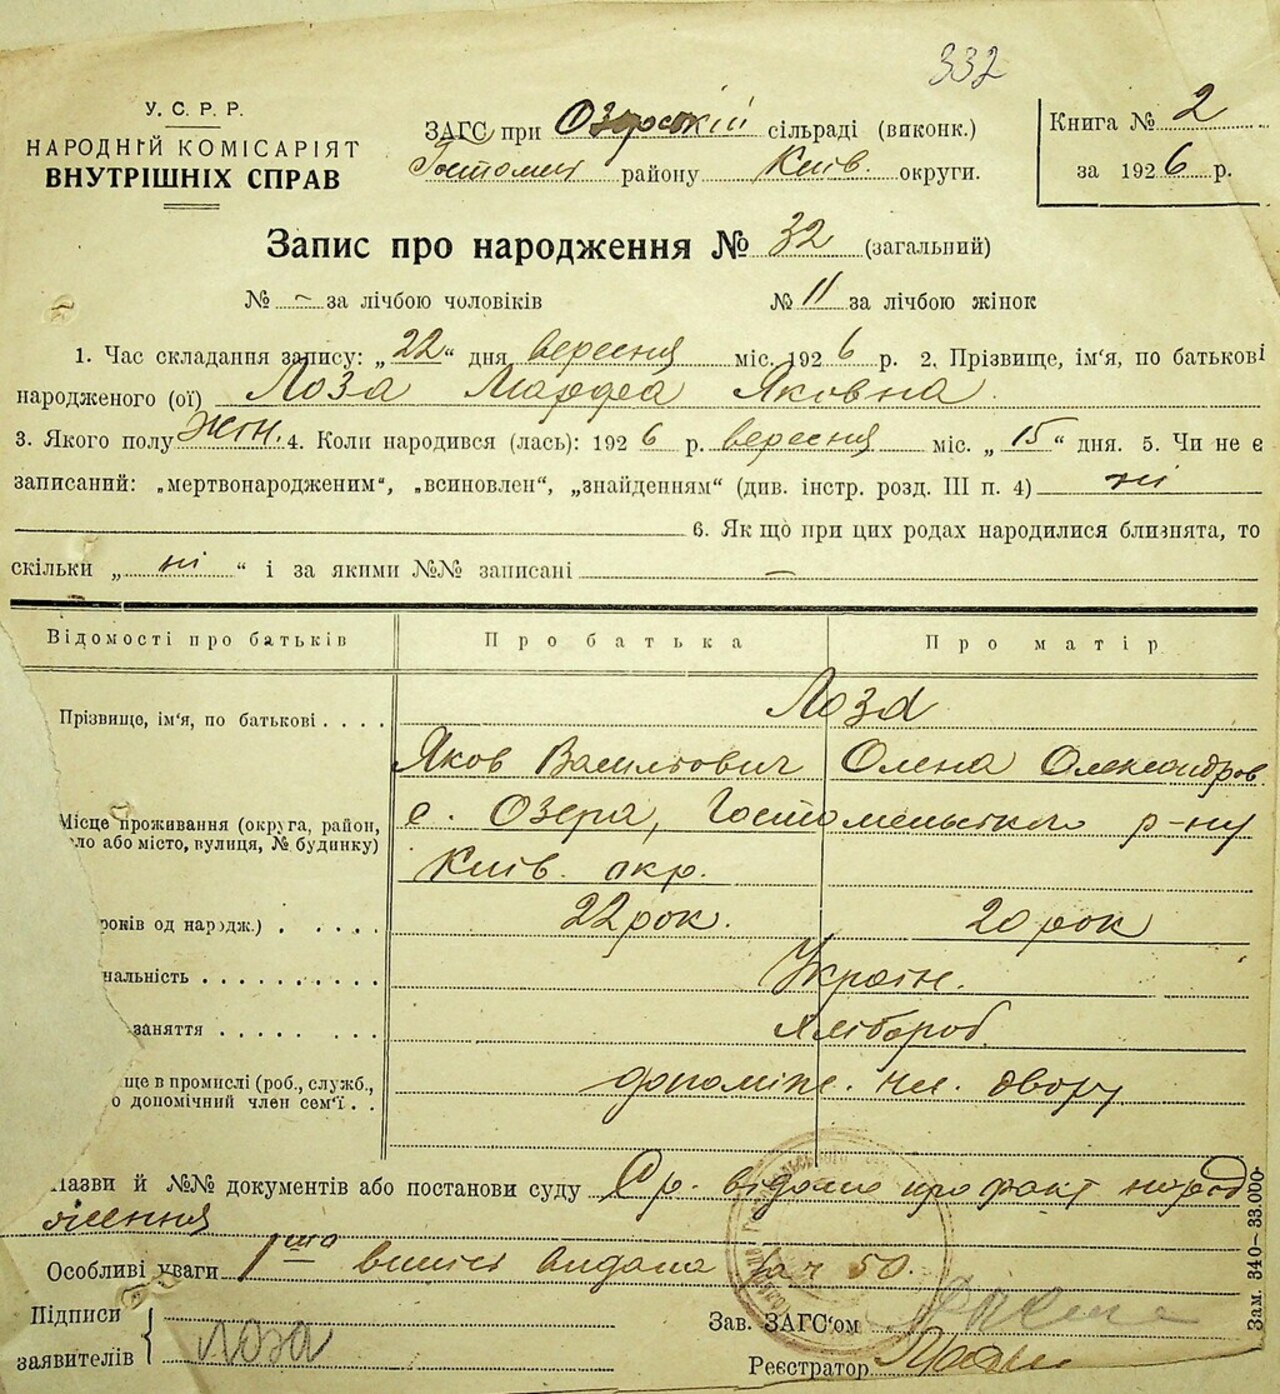 332
У. С. Р. Р.
НАРОДНІЙ КОМІСАРІЯТ
ВНУТРІШНІХ СПРАВ
ЗАГС при Озерській сільраді (виконк.)
Гостомел району Київ. округи.
Книга № 2
за 1926 р.
Запис про народження № 32 (загальний)
№ – за лічбою чоловіків № 11 за лічбою жінок
1. Час складання запису: „22“ дня вересня міс. 1926 р. 2. Прізвище, ім'я, по батькові
народженого (ої) Лоза Марфа Яковна
3. Якого полу жін. 4. Коли народився (лась): 1926 р. вересня міс. „15“ дня. 5. Чи не є
записаний: „мертвонародженим“, „всиновлен“, „знайденням“ (див. інстр. розд. III п. 4) ні
6. Як що при цих родах народилися близнята, то
скільки „ні“ і за якими №№ записані –
Відомості про батьків Про батька Про матір
Прізвище, ім'я, по батькові . . . . Лоза
Яков Васильович Олена Олександров.
Місце проживання (округа, район, с. Озера, Гостомельського р-ну
ло або місто, вулиця, № будинку)
Київ. окр.
років од народж.) . . . . . 22 рок. 20 рок
нальність . . . . . . . . . . Україн.
заняття . . . . . . . . Хлібороб.
ще в промислі (роб., служб., допоміж. чл. двору
о допомічний член сем'ї . .
Назви й №№ документів або постанови суду відома про факт народ
ження
Особливі уваги 1ша випись видана за ч 50.
Підписи
заявителів Лоза
Зав. ЗАГС'ом
Реєстратор
Зам. 340–33.000-